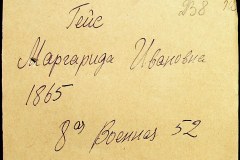 Гейс
Маргарида Ивановна
1865
8ая Военная 52